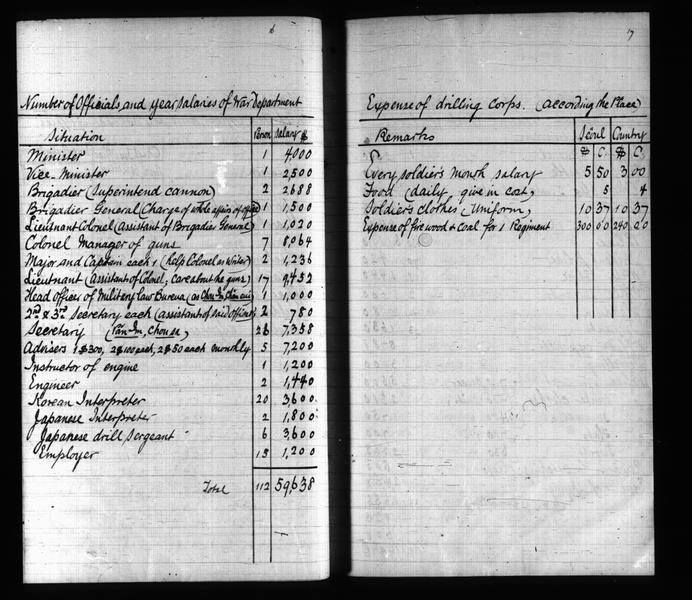 6
Number of Officials, and year salaries of War Department
Situation Person Salary $
Minister 1 4,000
Vice-Minister 1 2,500
Brigadier (Superintend cannon) 2 2688
Brigadier General (Charge of whole affairs of office) 1 1,500
Lieutenant Colonel (assistant of Brigadier General) 1 1,020
Colonel Manager of guns 7 8,064
Major and Captain each 1 (help Colonel as writer) 2 1,236
Lieutnant (assistant of Colonel, care about the guns) 17 9,452
Head officer of Military law Bureua 1 1,000
2nd & 3rd Secretary each (assistant of said officer) 2 780
Secretary 26 7,358
Advisers 1 $300, 2 $400 each, 2 $50 each monthly 5 7,200
Instructor of engine 1 1,200
Engineer 2 1,440
Korean Interpreter 20 3,600
Japanese Interpreter 2 1,800
Japanese drill, Sergeant 6 3,600
Employer 15 1,200
Total 112 59,638
7
Expense of drilling Corps. (according the Place)
Remarks Seoul Country
$ C. $ C.
Every soldier's month salary 5 50 3 00
Food (daily, give in cost) 5 4
Soldier's clothes (Uniform) 10 37 10 37
Expense of fire wood & coal for 1 Regiment 300 00 240 00